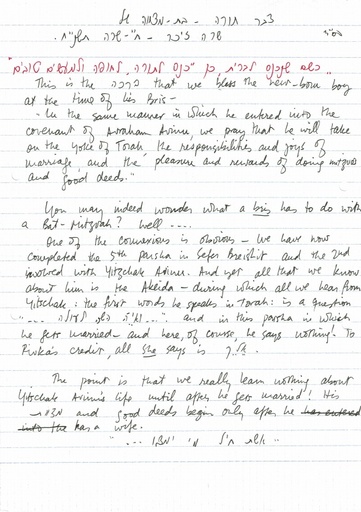 דבר תורה - בת-מצוה של
בס"ד
שרה
"כשם שנכנס לברית כן יכנס לתורה, לחופה ולמעשים טובים"
This is the ברכה that we bless the new-born boy
at the time of his Bris -
"In the same manner in which he entered into the
covenant of Avraham Avinu, we pray that he will take
on the yoke of Torah the responsibilities and joys of
marriage and the pleasure and rewards of doing mitzvos
and good deeds."
You may indeed wonder what a bris has to do with
a Bat-Mitzvah? Well ....
One of the connexions is obvious - We have now
completed the 5th parsha in Sefer Breishit and the 2nd
involved with Yitzchak Avinu. And yet all that we know
about him is the Akeida - during which all we hear from
Yitschak: the first words he speaks in Torah: is a question
"... ואיה השה לעולה ..." and in this parsha in which
he gets married - and here, of course, he says nothing! To
Rivka's credit, all she says is אלך.
The point is that we really learn nothing about
Yitschak Avinu's life until after he gets married! His
מצוות and good deeds begin only after he has entered
into the has a wife.
"אשת חיל מי ימצא ..."